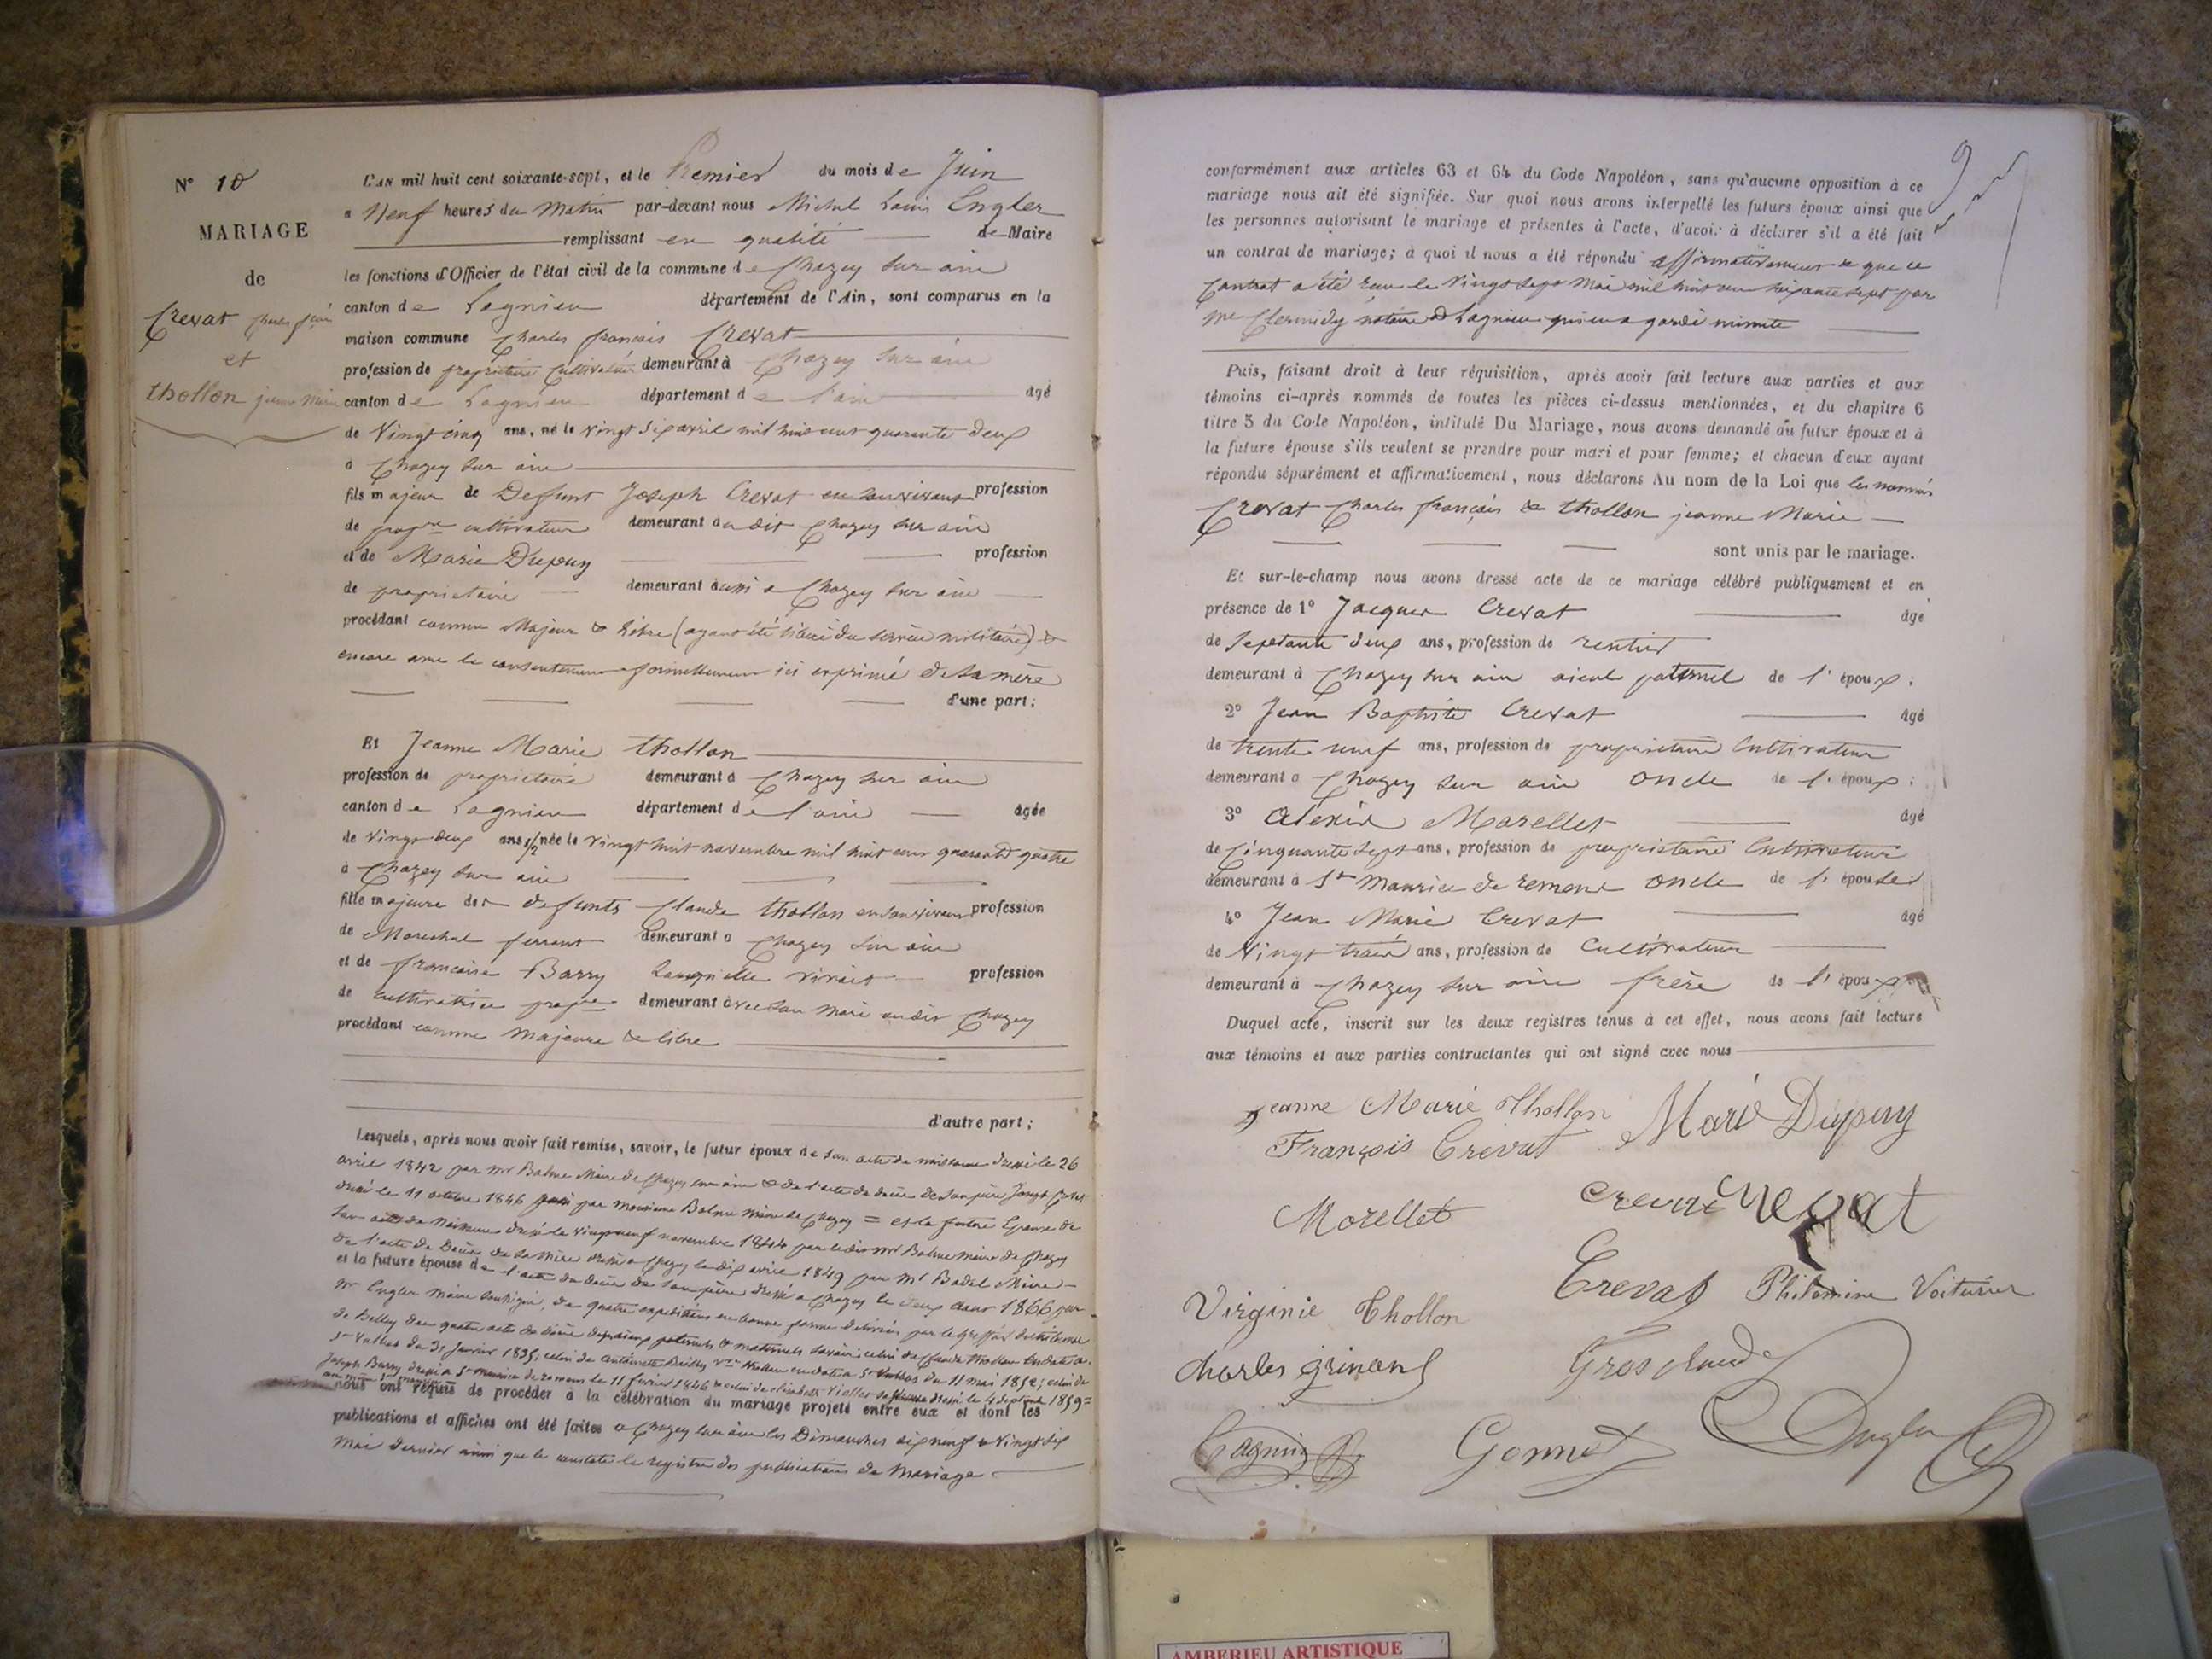 N° 10
MARIAGE
de
Crevat Charles fçois
et
thollon jeanne Marie
L'AN mil huit cent soixante-sept, et le Premier du mois de Juin
a Neuf heures du Matin par-devant nous Michel Louis Engler
remplissant en qualité de Maire
les fonctions d'Officier de l'état civil de la commune de Chazey sur ain
canton de Lagnieu département de l'Ain, sont comparus en la
maison commune Charles françois Crevat
profession de propriétaire Cultivateur demeurant à Chazey sur ain
canton de Lagnieu département de l'ain âgé
de Vingt cinq ans, né le vingt six avril mil huit cent quarante deux
à Chazey sur ain
fils majeur de Defunt Joseph Crevat en son vivant profession
de propre cultivateur demeurant au dit Chazey sur ain
et de Marie Dupuy profession
de propriétaire demeurant aussi a Chazey sur ain
procédant comme Majeur & libre (ayant été libéré du service militaire) &
encore avec le consentement formellement ici exprimé de sa mère
d'une part;
Et Jeanne Marie thollon
profession de propriétaire demeurant à Chazey sur ain
canton de Lagnieu département de l'ain âgée
de vingt deux ans 1/2 née le vingt huit novembre mil huit cent quarante quatre
à Chazey sur ain
fille majeure des defunts Claude thollon en son vivant profession
de Marechal ferrant demeurant a Chazey sur ain
et de francoise Barry Laquelle vivait profession
de cultivatrice propre demeurant avec son mari au dit Chazey
procédant comme majeure & libre
d'autre part;
Lesquels, après nous avoir fait remise, savoir, le futur époux de son acte de naissance dressé le 26
avril 1842 par mr Balme Maire de Chazey sur ain & de l'acte de décès de son père Joseph Crevat
dressé le 11 octobre 1846 par Monsieur Balme Maire de Chazey = et la future Epouse de
son acte de Naissance dressé le vingt neuf novembre 1844 par le dit mr Balme maire de Chazey
de l'acte de Décès de sa Mère dressé a Chazey le dix avril 1849 par Mr Badel Maire
et la future épouse de l'acte de décès de son père dressé a Chazey le deux aout 1866 par
Mr Engler Maire soussigné, de quatre expéditions en bonne forme delivrées par le Greffier du tribunal
de Belley des quatre actes de décès des ayeux paternels & maternels savoir: celui de Claude thollon
St Vulbas du 31 Janvier 1835, celui de antoinette Bailly Vve thollon en date a St Vulbas du 11 mai 1852; celui de
Joseph Barry dressé a St Maurice de remens le 11 février 1846 & celui de elisabeth Viollet dressé le 4 septembre 1859=
nous ont requis de procéder à la célébration du mariage projeté entre eux et dont les
publications et affiches ont été faites a Chazey sur ain les Dimanches dix neuf & vingt six
Mai dernier ainsi que le constate le registre des publications de Mariage
9
conformément aux articles 63 et 64 du Code Napoléon, sans qu'aucune opposition à ce
mariage nous ait été signifiée. Sur quoi nous avons interpellé les futurs époux ainsi que
les personnes autorisant le mariage et présentes à l'acte, d'avoir à déclarer s'il a été fait
un contrat de mariage; à quoi il nous a été répondu affirmativement & que ce
Contrat a été reçu le Vingt sept Mai mil huit cent soixante sept par
Me Clermidy notaire a Lagnieu qui en a gardé minute
Puis, faisant droit à leur réquisition, après avoir fait lecture aux parties et aux
témoins ci-après nommés de toutes les pièces ci-dessus mentionnées, et du chapitre 6
titre 5 du Code Napoléon, intitulé Du Mariage, nous avons demandé au futur époux et à
la future épouse s'ils veulent se prendre pour mari et pour femme; et chacun d'eux ayant
répondu séparément et affirmativement, nous déclarons Au nom de la Loi que les nommés
Crevat Charles françois & thollon jeanne Marie
sont unis par le mariage.
Et sur-le-champ nous avons dressé acte de ce mariage célébré publiquement et en
présence de 1° Jacques Crevat âgé
de Septante deux ans, profession de rentier
demeurant à Chazey sur ain aieul paternel de l'époux;
2° Jean Baptiste Crevat âgé
de trente neuf ans, profession de propriétaire Cultivateur
demeurant a Chazey sur ain oncle de l'époux;
3° Alexis Morellet âgé
de Cinquante sept ans, profession de propriétaire Cultivateur
demeurant à St Maurice de remens oncle de l'épouse;
4° Jean Marie Crevat âgé
de Vingt trois ans, profession de Cultivateur
demeurant à Chazey sur ain frère de l'époux
Duquel acte, inscrit sur les deux registres tenus à cet effet, nous avons fait lecture
aux témoins et aux parties contractantes qui ont signé avec nous
jeanne Marie Thollon Marie Dupuy
François Crevat
Morellet Crevat Crevat
Crevat Philomine Voiturier
Virginie Thollon
Charles Grinand Gros claude
Gagnie Gonnet Engler
AMBERIEU ARTISTIQUE